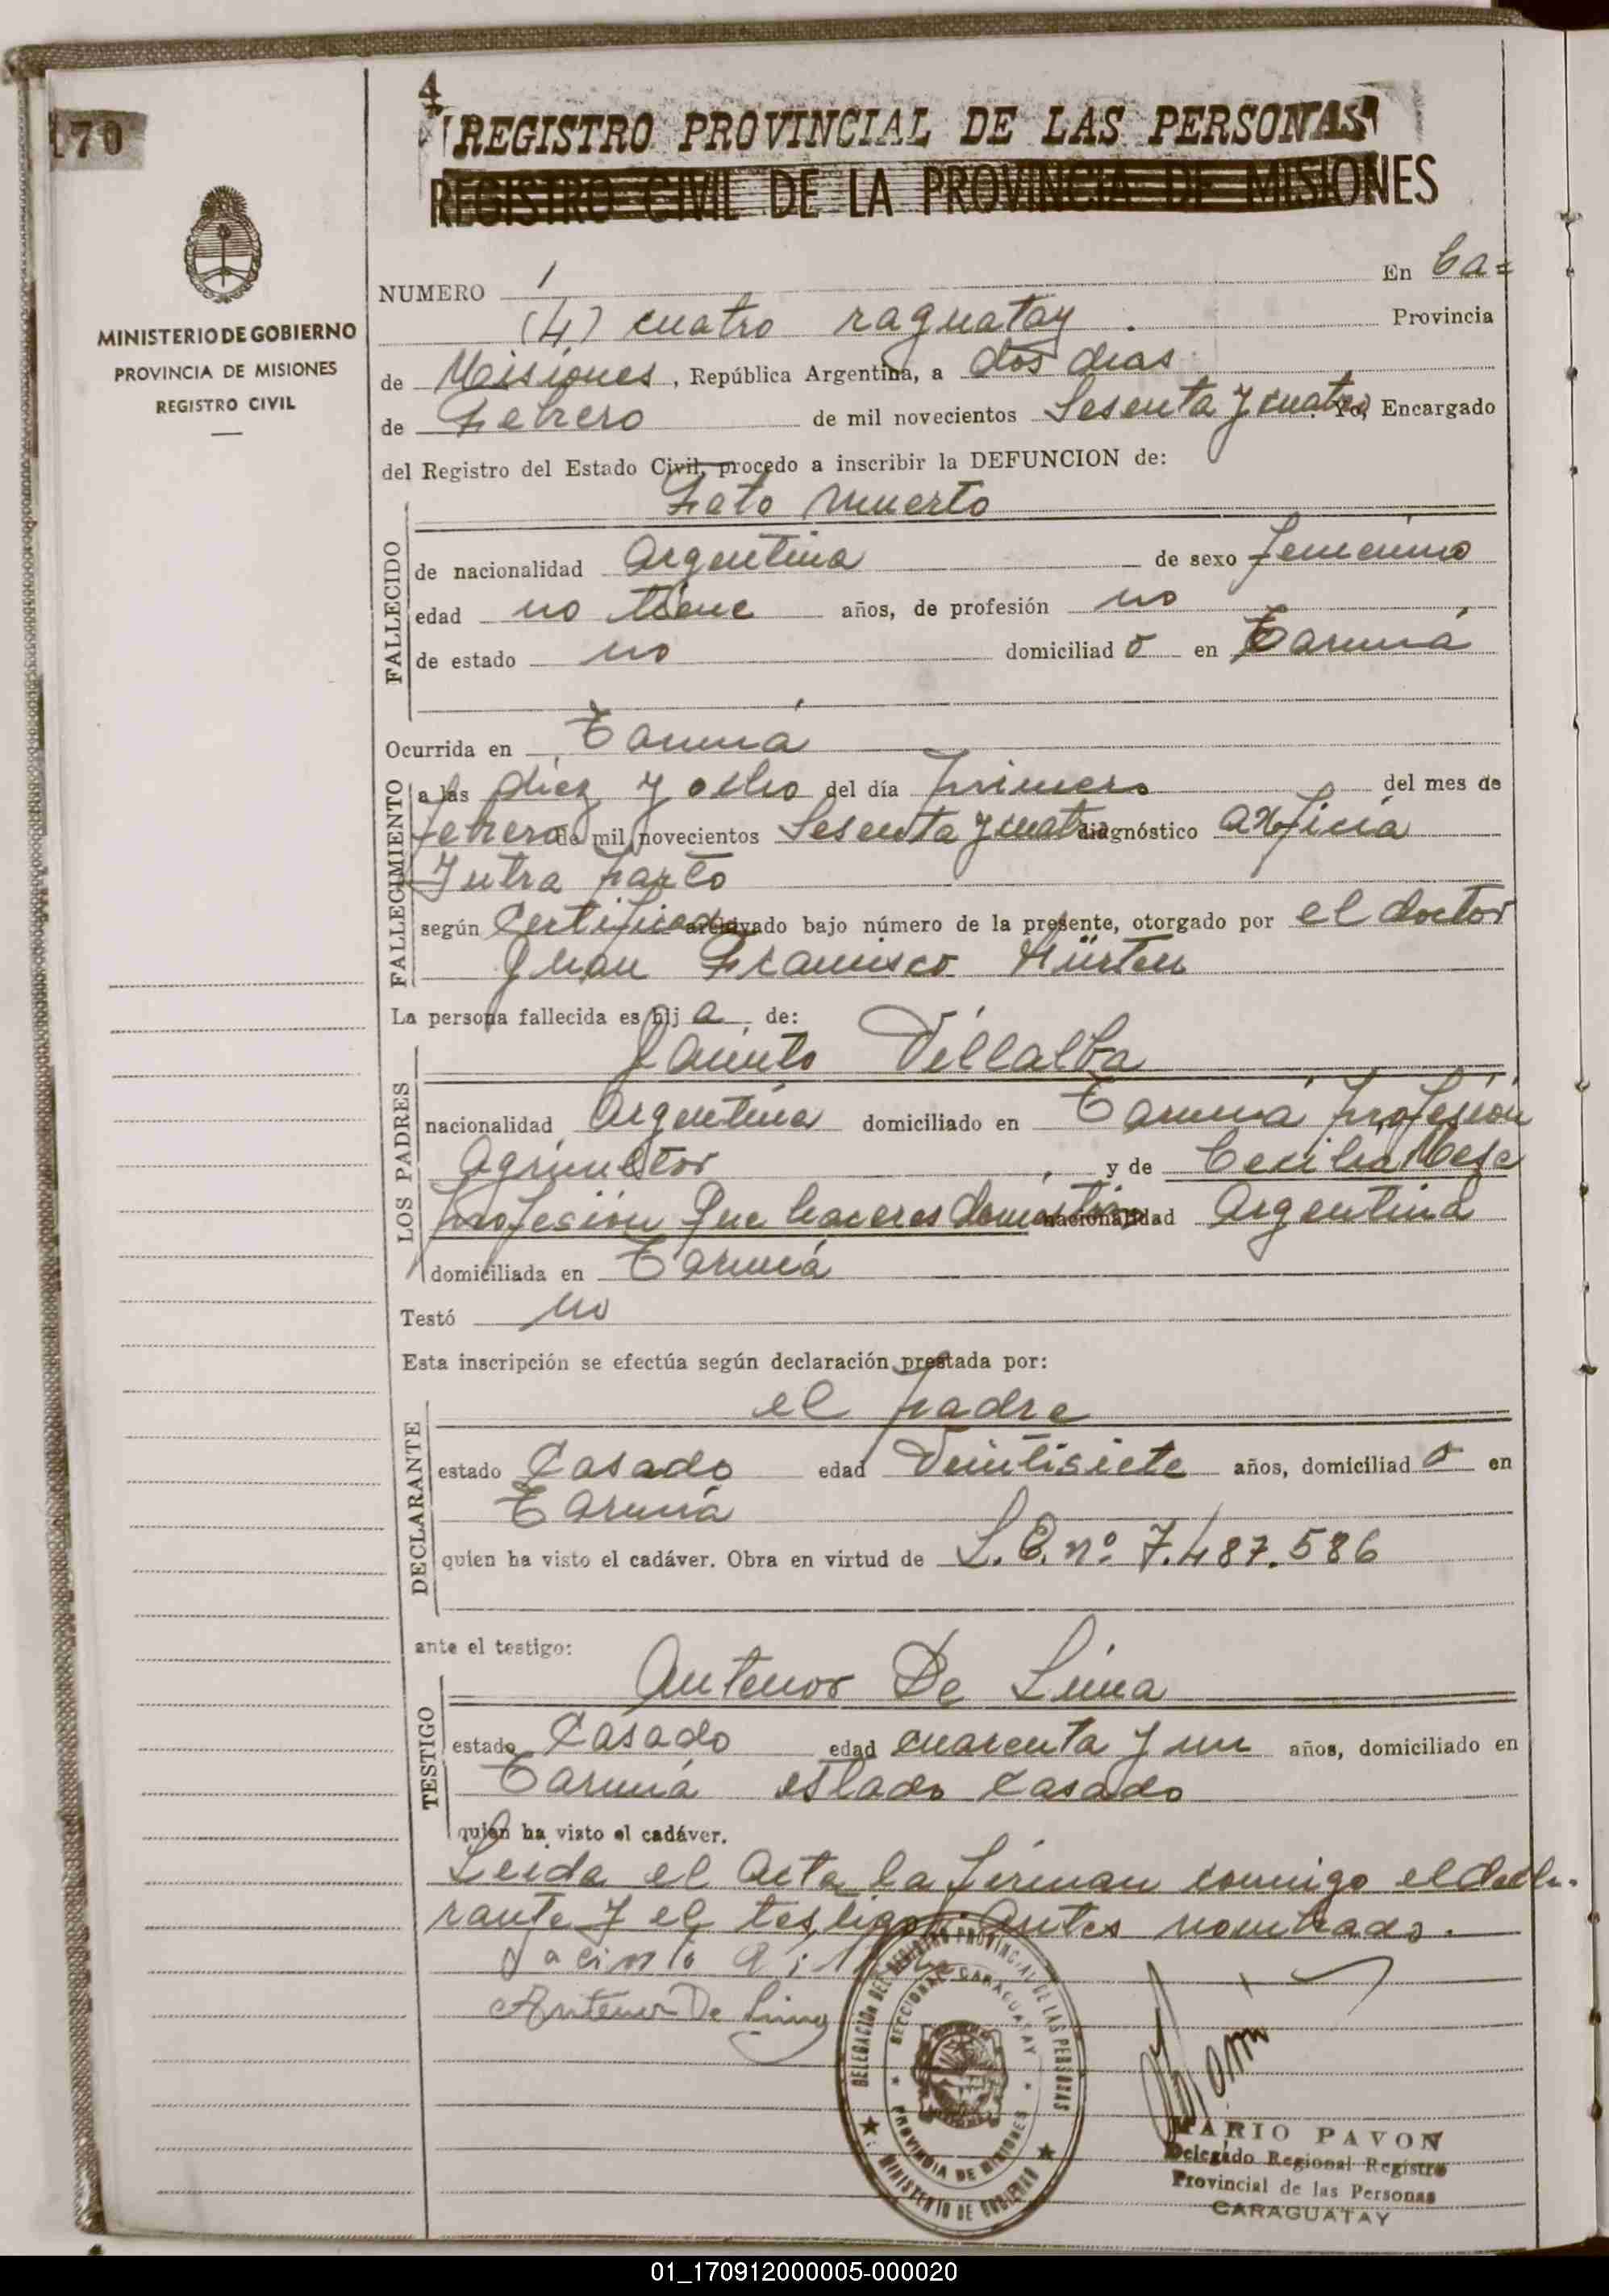 170
4
REGISTRO PROVINCIAL DE LAS PERSONAS
REGISTRO CIVIL DE LA PROVINCIA DE MISIONES
MINISTERIO DE GOBIERNO
PROVINCIA DE MISIONES
REGISTRO CIVIL
NUMERO 1 En Ca=
(4) cuatro raguatay . Provincia
de Misiones, República Argentina, a dos dias
de Febrero de mil novecientos Sesenta y cuatro Yo, Encargado
del Registro del Estado Civil, procedo a inscribir la DEFUNCION de:
Feto Muerto
FALLECIDO
de nacionalidad Argentina de sexo femenino
edad no tiene años, de profesión no
de estado no domiciliad o en Tarumá
Ocurrida en Tarumá
FALLECIMIENTO
a las diez y ocho del día primero del mes de
febrero de mil novecientos Sesenta y cuatro diagnóstico axficia
Intra parto
según Certificado archivado bajo número de la presente, otorgado por el doctor
Juan Francisco Hürten
La persona fallecida es hij a de:
LOS PADRES
Jacinto Villalba
nacionalidad Argentina domiciliado en Tarumá profesión
Agricultor , y de Cecilia
profesión Que haceres domésticos nacionalidad Argentina
domiciliada en Tarumá
Testó no
Esta inscripción se efectúa según declaración prestada por:
DECLARANTE
el padre
estado Casado edad Veintisiete años, domiciliad o en
Tarumá
quien ha visto el cadáver. Obra en virtud de L.E. nº 7.487.586
ante el testigo:
TESTIGO
Antenor De Lima
estado Casado edad cuarenta y un años, domiciliado en
Tarumá estado casado
quien ha visto el cadáver.
Leída el Acta la firman conmigo el decla-
rante y el testigo Antes nombrado.
Jacinto
Antenor De Lima
DELEGACION DEL REGISTRO PROVINCIAL DE LAS PERSONAS
SECCIONAL CARAGUATAY
PROVINCIA DE MISIONES
MINISTERIO DE GOBIERNO
MARIO PAVON
Delegado Regional Registro
Provincial de las Personas
CARAGUATAY
01_170912000005-000020